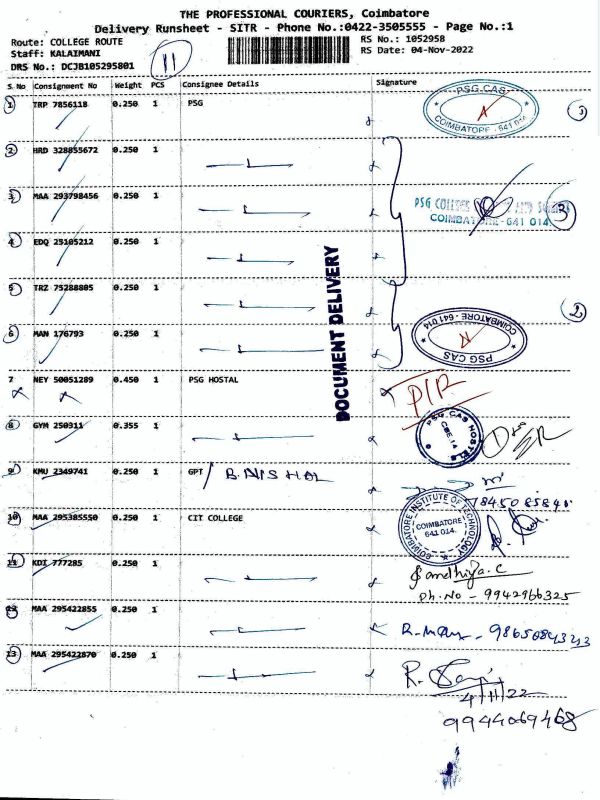 THE PROFESSIONAL COURIERS, Coimbatore
Delivery Runsheet - SITR - Phone No.:0422-3505555 - Page No.:1
Route: COLLEGE ROUTE
Staff: KALAIMANI
DRS No.: DCJB105295801
11
RS No.: 1052958
RS Date: 04-Nov-2022
S.No Consignment No Weight PCS Consignee Details Signature
1 TRP 7856118 0.250 1 PSG
PSG CAS
COIMBATORE - 641 014
2 HRD 328855672 0.250 1
3 MAA 293798456 0.250 1
PSG COLLEGE
COIMBATORE - 641 014.
3
4 EDQ 25105212 0.250 1
5 TRZ 75288805 0.250 1
2
6 MAN 176793 0.250 1
COIMBATORE - 641 014
PSG CAS
DOCUMENT DELIVERY
7 NEY 50051289 0.450 1 PSG HOSTAL
PIR
8 GYM 250311 0.355 1
PSG CAS HOSTELS
CBE-14
9 KMU 2349741 0.250 1 GPT / B.NISHAL
10 MAA 295385550 0.250 1 CIT COLLEGE
COIMBATORE INSTITUTE OF TECHNOLOGY
COIMBATORE
641 014.
11 KDI 777285 0.250 1
Sandhiya.C
Ph.No - 9942966325
12 MAA 295422855 0.250 1
13 MAA 295422870 0.250 1
4/11/22
9944069468